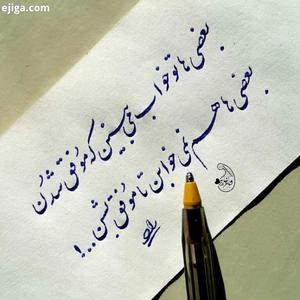 ejiga.com
بعضی ها تو خواب می بینن که موفق شدن
بعضی ها هم نمی خوابن تا موفق بشن...!